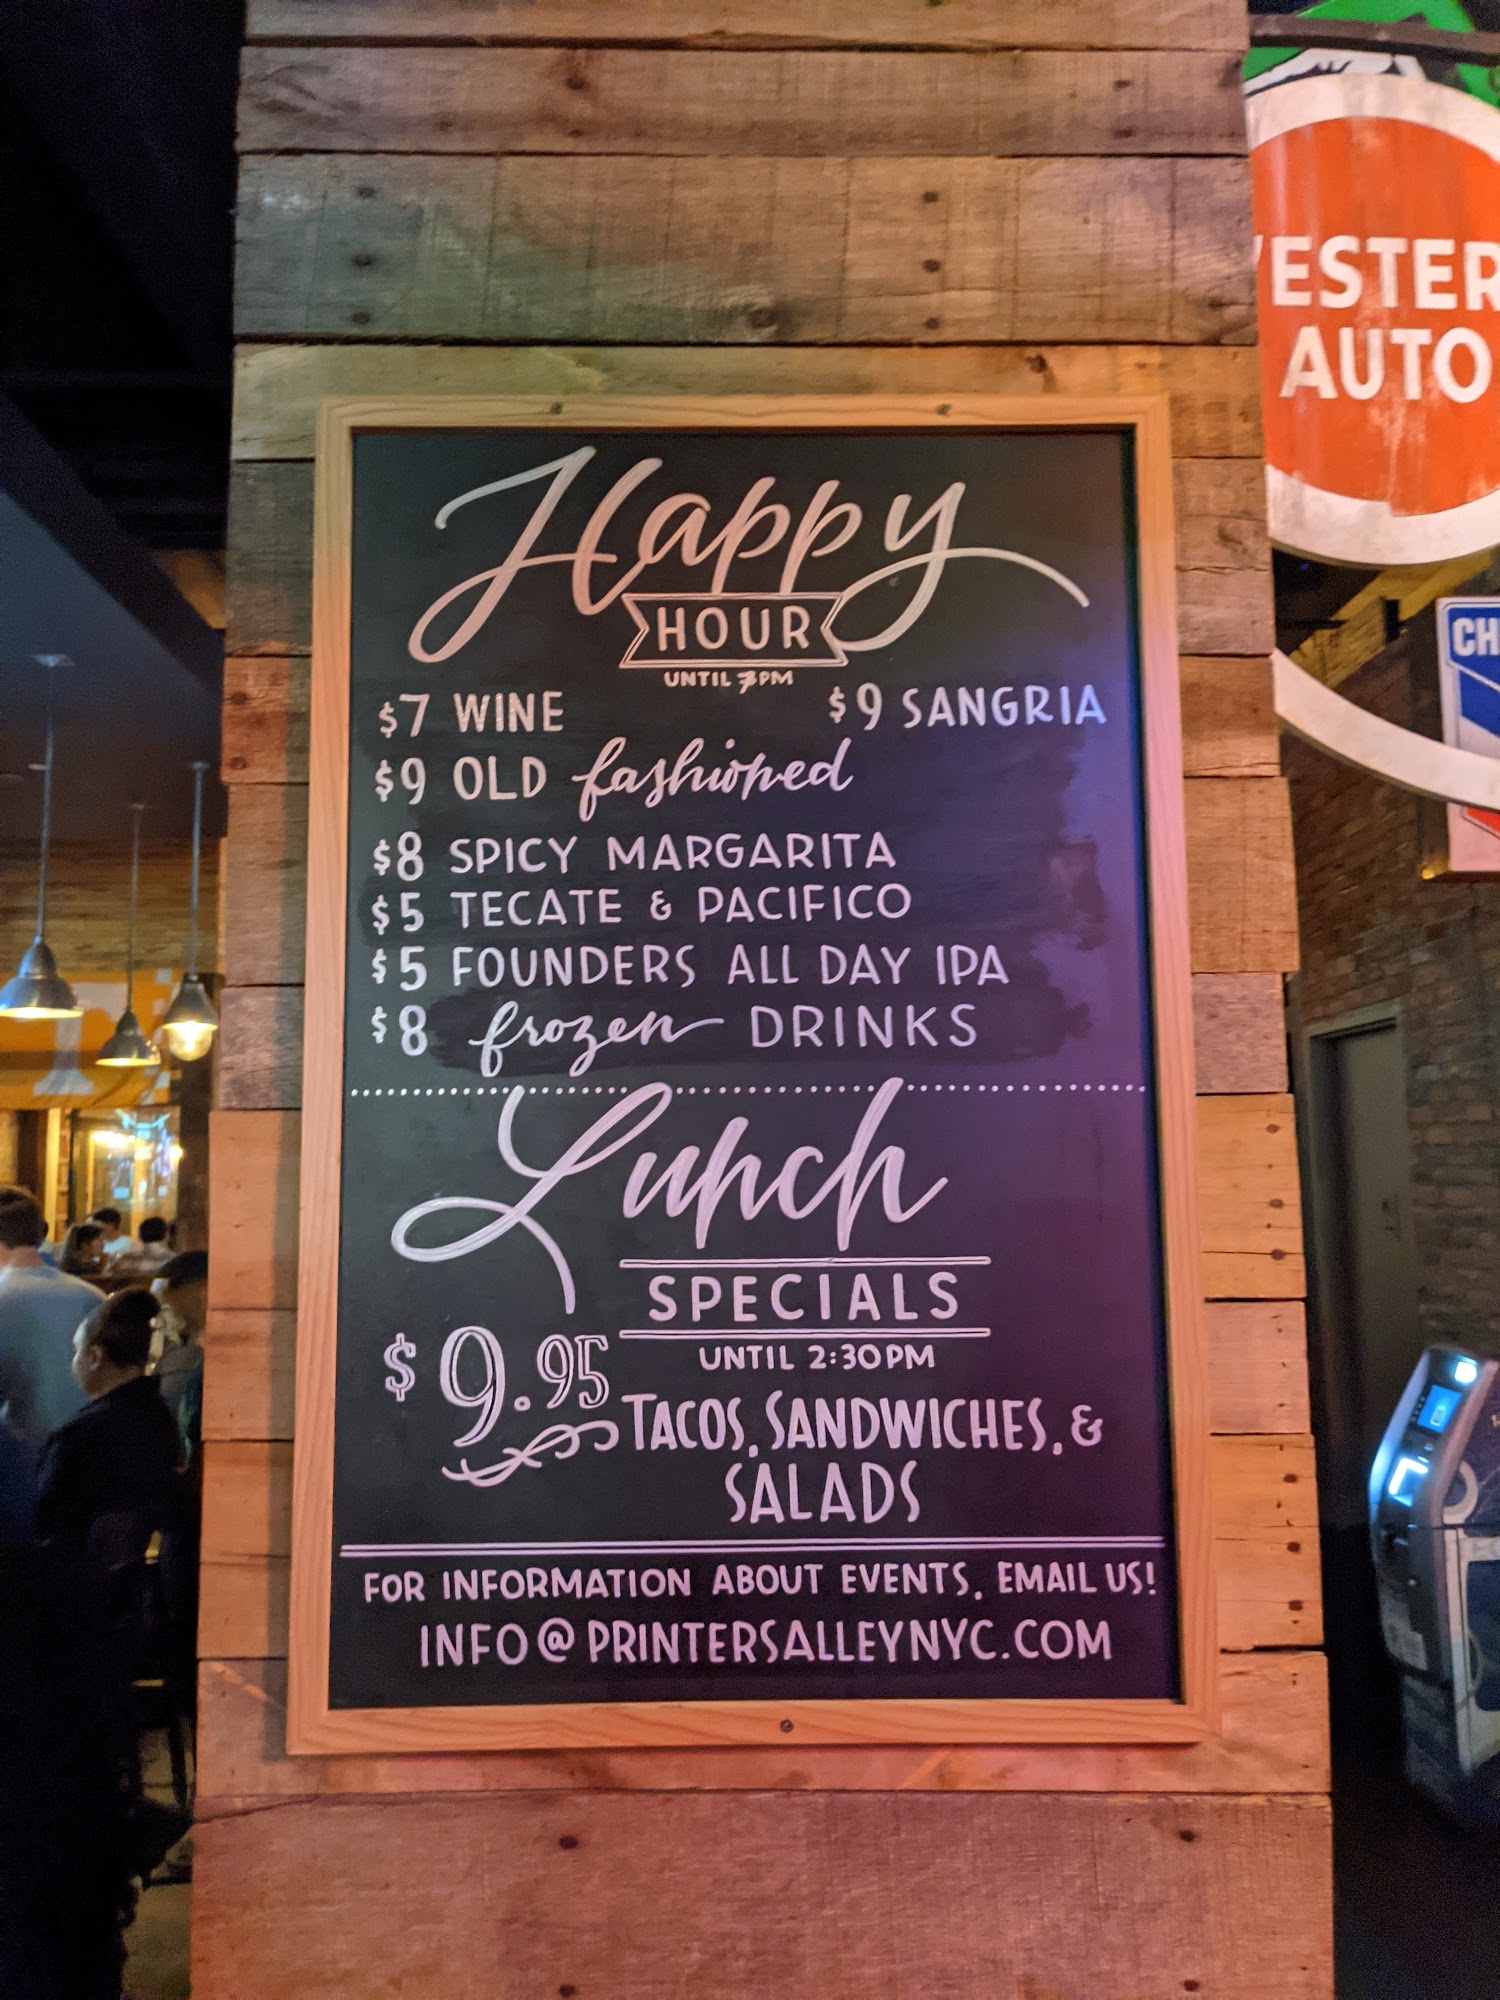 Happy
HOUR
UNTIL 7PM
$7 WINE
$9 SANGRIA
$9 OLD fashioned
$8 SPICY MARGARITA
$5 TECATE & PACIFICO
$5 FOUNDERS ALL DAY IPA
$8 frozen DRINKS
Lunch
SPECIALS
UNTIL 2:30PM
$9.95
TACOS, SANDWICHES, &
SALADS
FOR INFORMATION ABOUT EVENTS, EMAIL US!
INFO@PRINTERSALLEYNYC.COM
ESTER
AUTO
CH